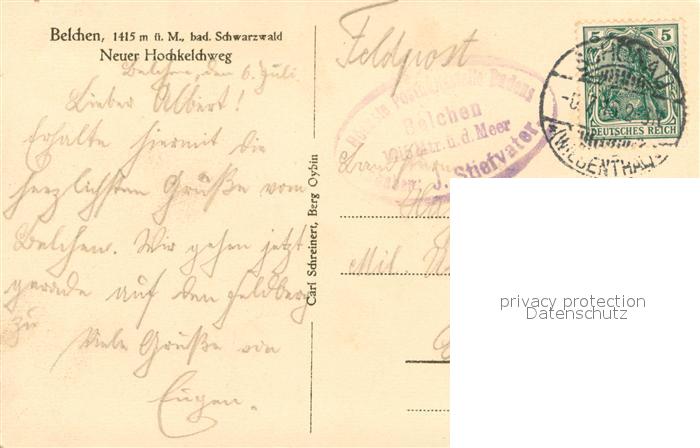 Belchen, 1415 m ü. M., bad. Schwarzwald
Neuer Hochkelchweg
Belchen, den 6. Juli.
Lieber Albert!
Erhalte hiermit die
herzlichsten Grüße vom
Belchen. Wir gehen jetzt
gerade auf den Feldberg
zu
Viele Grüße von
Eugen.
Carl Schreinert, Berg Oybin
Feldpost
Badens
Belchen
ü. d. Meer
J. Stiefvater
5 5
DEUTSCHES REICH
SCHÖNAU
(WIESENTHAL)
Mil.
privacy protection
Datenschutz